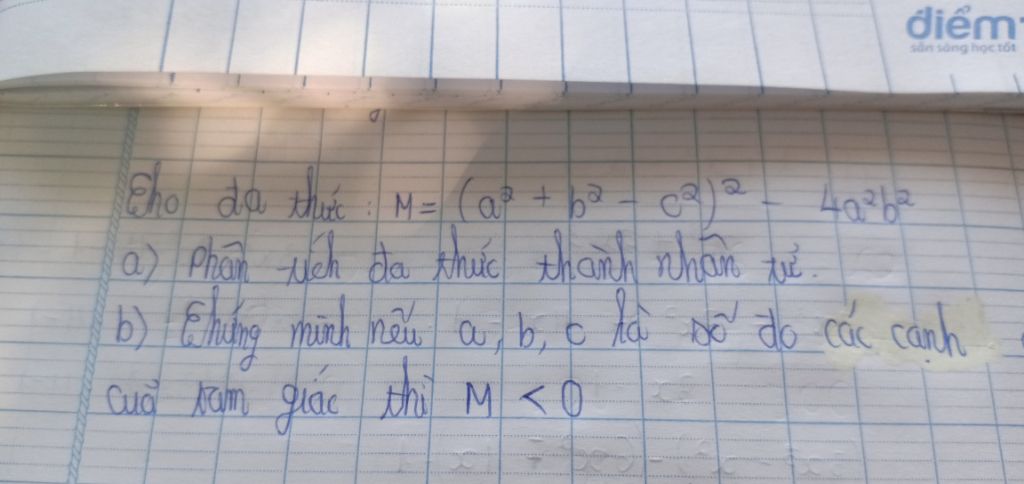 điểm
sẵn sàng học tốt
Cho đa thức: M = (a² + b² - c²)² - 4a²b²
a) Phân tích đa thức thành nhân tử.
b) Chứng minh nếu a, b, c là số đo các cạnh
của tam giác thì M < 0